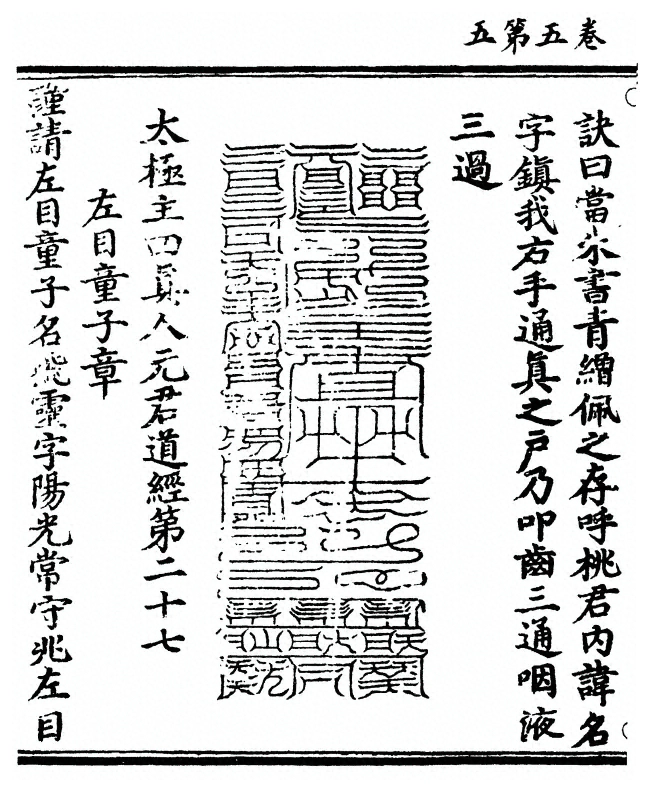 卷五第五
訣曰當朱書青繒佩之存呼桃君内諱名
字鎮我右手通眞之戶乃叩齒三通咽液
三過
太極主四眞人元君道經第二十七
左目童子章
謹請左目童子名飛靈字陽光常守兆左目